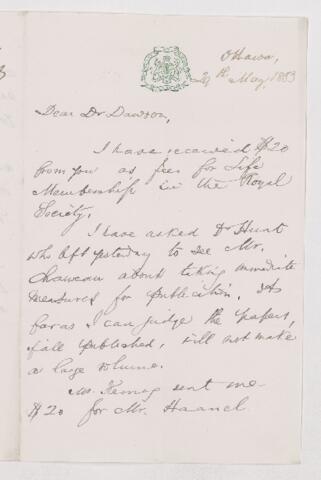 Ottawa,
May, 1883
Dear Dr Dawson,
I have received $20
from you as fees for Life
Membership in the Royal
Society.
I have asked Dr Hunt
who left yesterday to see Mr.
Chauveau about taking immediate
measures for publication. As
far as I can judge the papers,
if all published, will not make
a large volume.
sent me
$20 for Mr. Haanel.